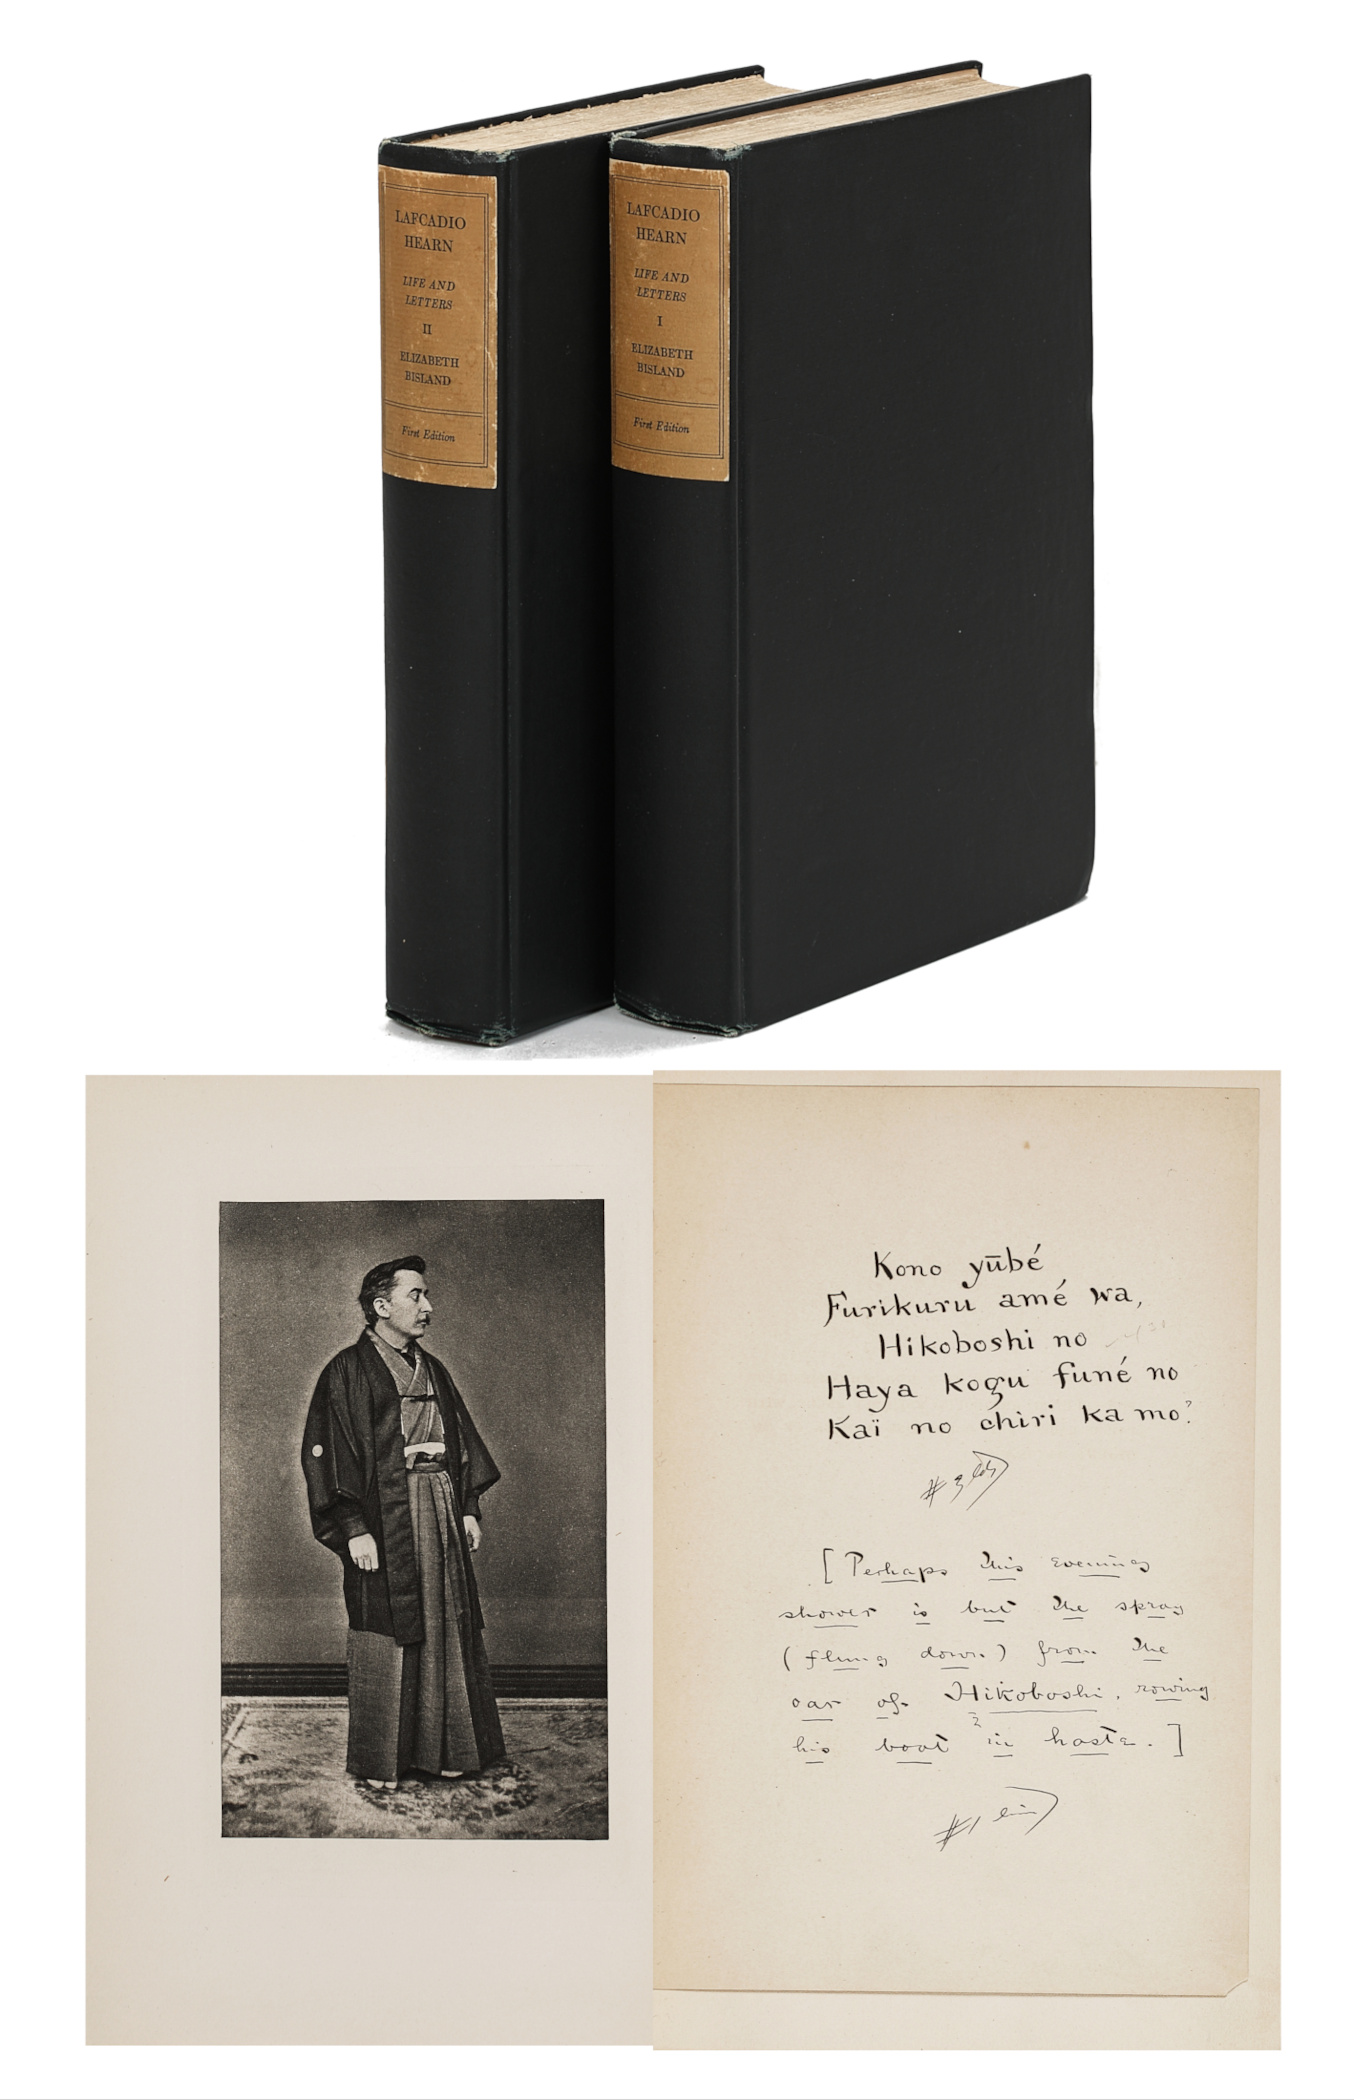 LAFCADIO
HEARN
LIFE AND
LETTERS
II
ELIZABETH
BISLAND
First Edition
LAFCADIO
HEARN
LIFE AND
LETTERS
I
ELIZABETH
BISLAND
First Edition
Kono yūbé
Furikuru amé wa,
Hikoboshi no
Haya kogu funé no
Kaï no chiri ka mo?
# 3
[Perhaps this evening
shower is but the spray
(flung down) from the
oar of Hikoboshi, rowing
his boat in haste.]
#1